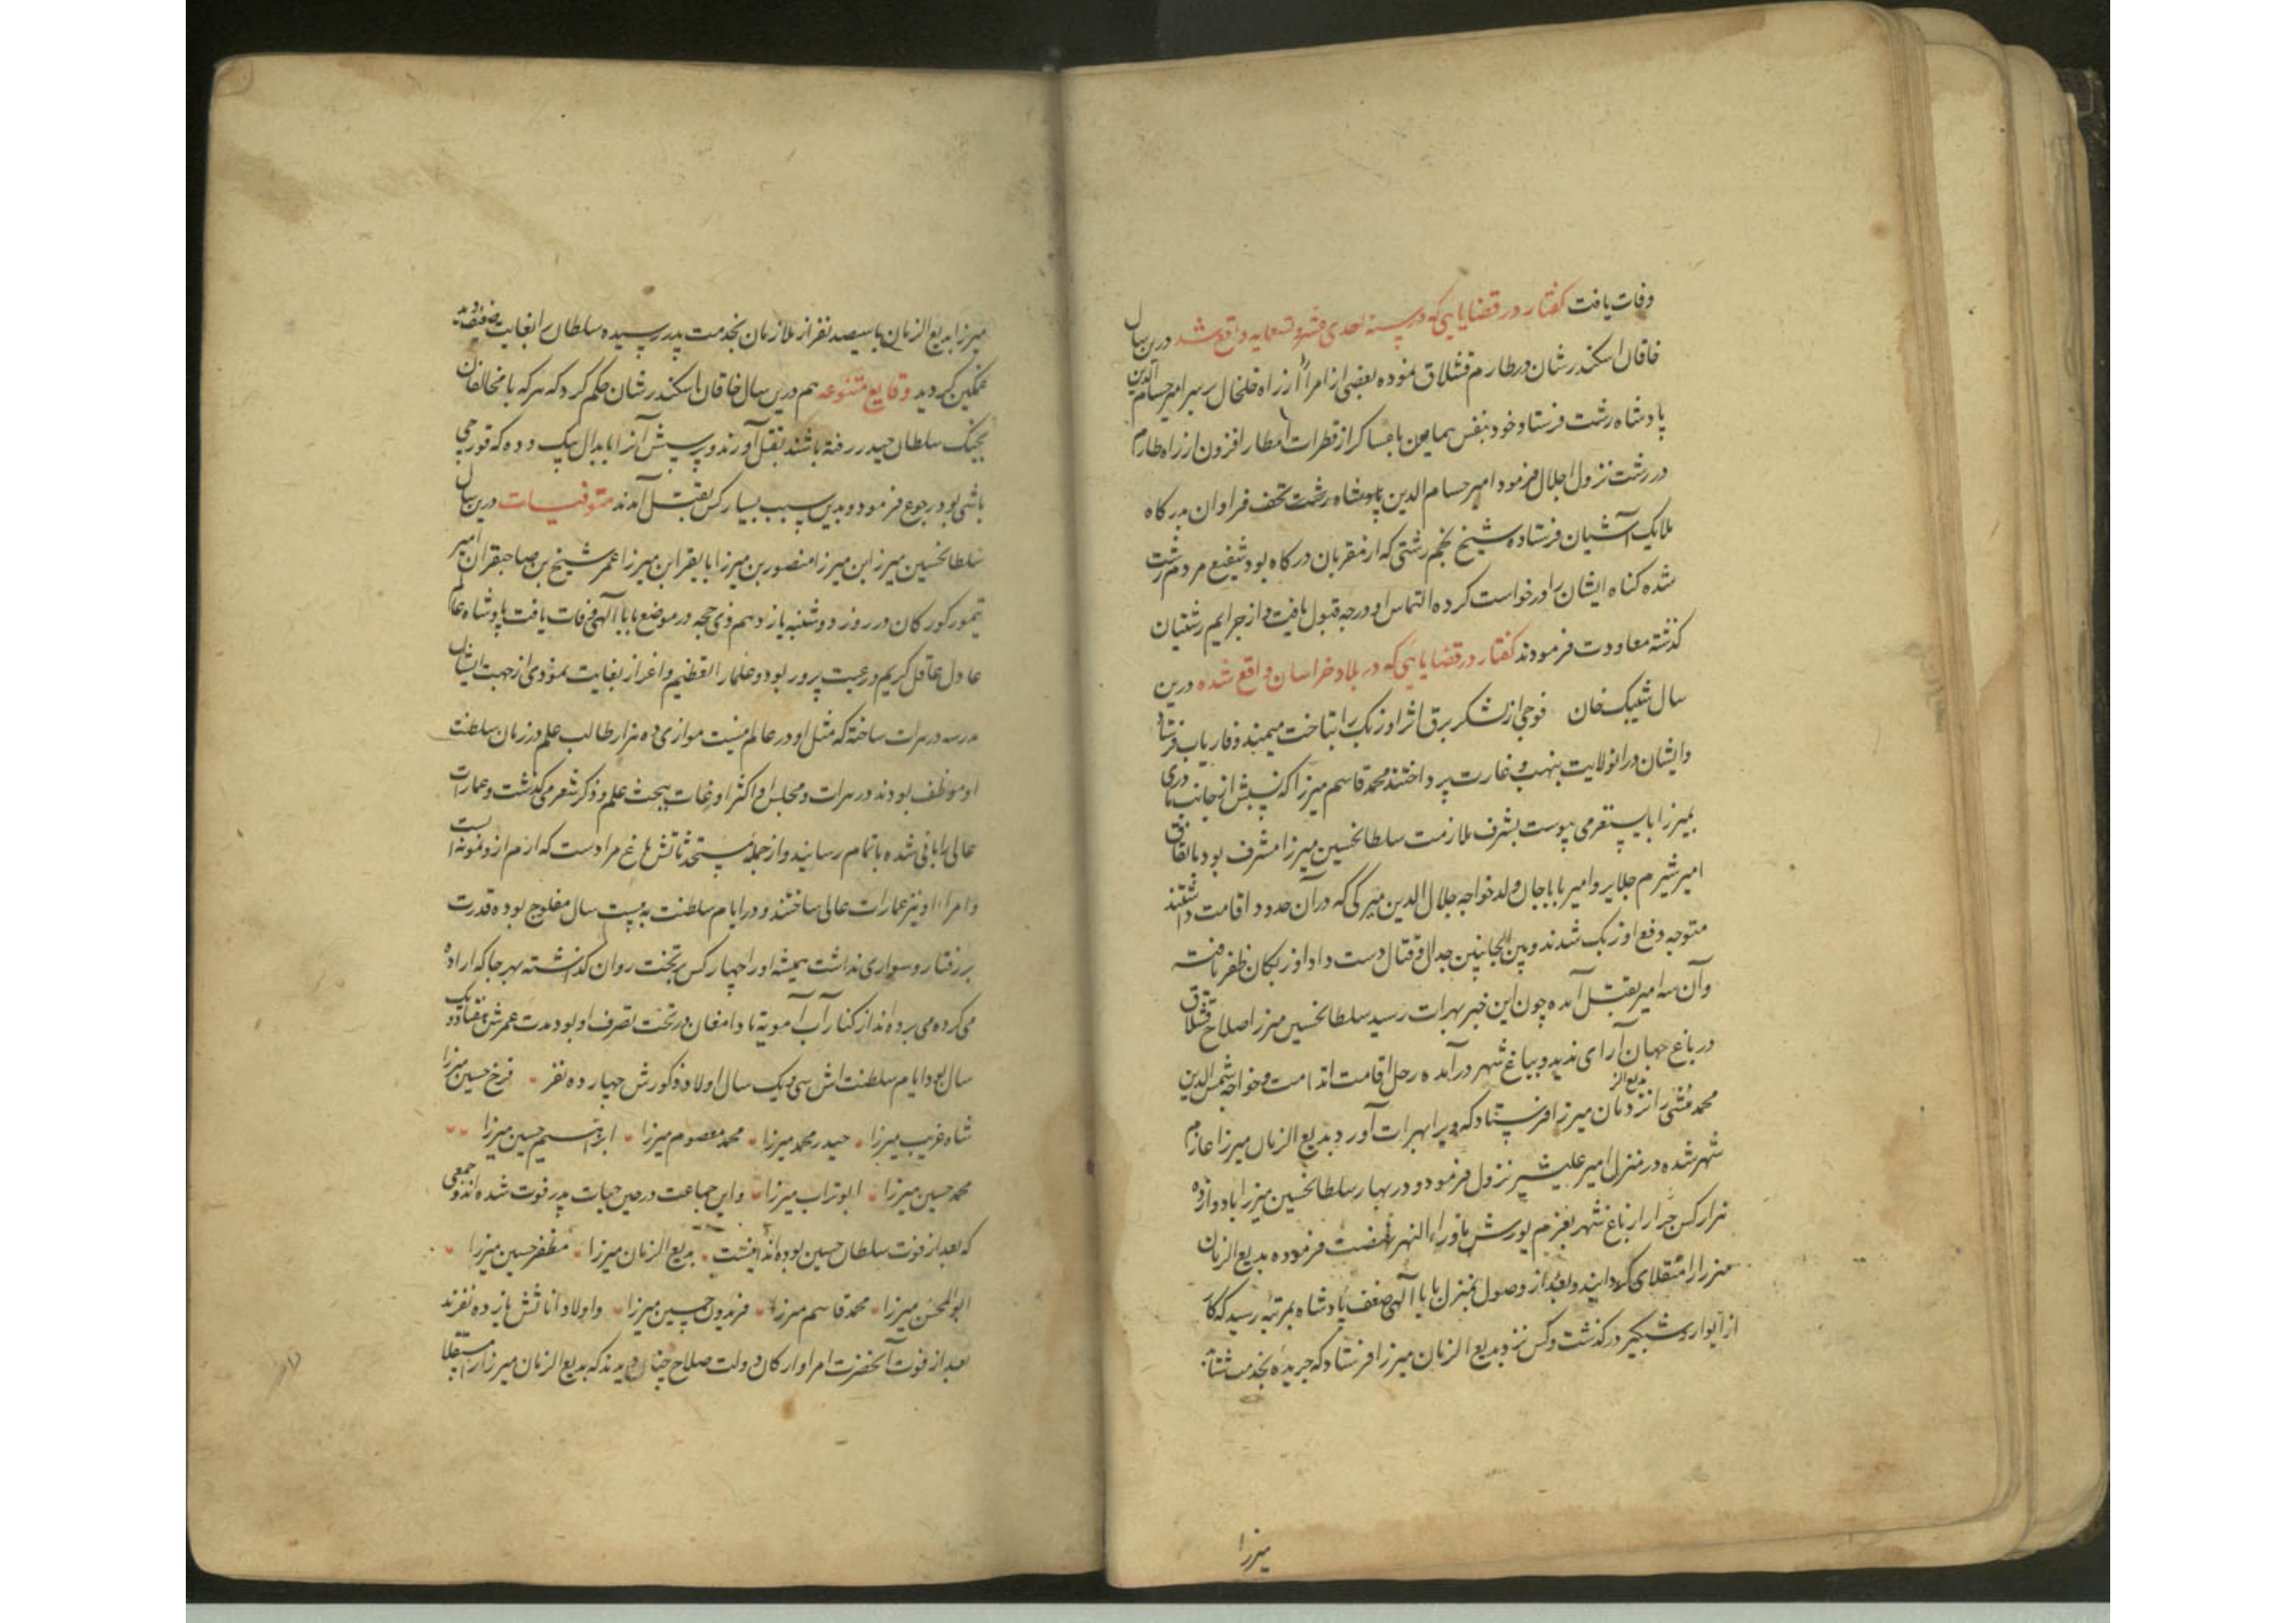 وفات یافت گفتار در قضایایی که در سنه احدی عشر و تسعمایه واقع شد درین سال
خاقان اسکندرشان در طارم قشلاق نموده بعضی از امرا را از راه خلخال بر سر امیر حسام الدین
پادشاه رشت فرستاد و خود بنفس همایون با عساکر از قطرات امطار افزون از راه طارم
در رشت نزول اجلال فرمود امیر حسام الدین پادشاه رشت تحف فراوان بدرکاه
ملایک آشیان فرستاده شیخ نجم رشتی که از مقربان درکاه بود شفیع مردم رشت
شده کناه ایشان را درخواست کرده التماس او درجه قبول یافت و از جرایم رشتیان
کذشته معاودت فرمودند گفتار در قضایایی که در بلاد خراسان واقع شده درین
سال شیبک خان فوجی از لشکر برق اثر اوزبک را بتاخت میمنه و فاریاب فرستاد
وایشان در انولایت بنهب و غارت پرداختند محمد قاسم میرزا که پیش از
بمیرزا بایسنقر می پیوست بشرف ملازمت سلطانحسین میرزا مشرف بود باتفاق
امیر شیرم جلایر و امیر باباجان ولد خواجه جلال الدین میرکی که در آن حدود اقامت داشتند
متوجه دفع اوزبک شدند و بین الجانبین جدال و قتال دست داد اوزبکان ظفر یافته
وآن سه امیر بقتل آمده چون این خبر بهرات رسید سلطانحسین میرزا صلاح قشلاق
در باغ جهان آرای ندید و بباغ شهر در آمده رحل اقامت انداخت و خواجه شمس الدین
محمد منشی را نزد بدیع الزمان میرزا فرستاد که ویرا بهرات آورد بدیع الزمان میرزا عازم
شهر شده در منزل امیر علیشیر نزول فرمود و در بهار سلطانحسین میرزا با دوازده
هزار کس جرار از باغ شهر بعزم یورش ماوراء النهر نهضت فرموده بدیع الزمان
میرزا را منقلای کردانید و بعد از وصول بمنزل بابا آلهی ضعف پادشاه بمرتبه رسید که کار
از ایوار و شبکیر درکذشت و کس نزد بدیع الزمان میرزا فرستاد که جریده بخدمت شتابد
میرزا
میرزا بدیع الزمان با سیصد نفر از ملازمان بخدمت پدر رسیده سلطان را بغایت ضعیف دیده
غمکین کردید وقایع متنوعه هم درین سال خاقان اسکندرشان حکم کرد که هر که با مخالفان
بجنک سلطان حیدر رفته باشند بقتل آورند و پرسش آنرا بابدال بیک دده که قورچی
باشی بود رجوع فرمود و بدین سبب بسیار کس بقتل آمدند متوفیات درین سال
سلطانحسین میرزا ابن میرزا منصور بن میرزا بایقرا بن میرزا عمر شیخ بن صاحبقران امیر
تیمور کورکان در روز دوشنبه یازدهم ذی حجه در موضع بابا آلهی وفات یافت پادشاه عالم
عادل عاقل کریم و رعیت پرور بود و علما را تعظیم و اعزاز بغایت نمودی از جهت ایشان
مدرسه در هرات ساخته که مثل او در عالم نیست موازی ده هزار طالب علم در زمان سلطنت
او موظف بودند در هرات و مجلس او اکثر اوقات ببحث علم و ذکر شعر می کذشت و عمارات
عالی را بانی شده باتمام رسانید و از جمله مستحدثاتش باغ مرادست که ارم از و نمونه است
و امراء او نیز عمارات عالی ساختند و در ایام سلطنت به بیست سال مفلوج بوده قدرت
بر رفتار و سواری نداشت همیشه او را چهار کس بر تخت روان کذاشته بهر جا که اراده
می کرده می برده اند از کنار آب آمویه تا دامغان در تحت تصرف او بود مدت عمرش هفتاد و یک
سال بود ایام سلطنت اش سی و یک سال اولاد ذکورش چهارده نفر فرخ حسین میرزا
شاه غریب میرزا حیدر محمد میرزا محمد معصوم میرزا ابراهیم حسین میرزا
محمد حسین میرزا ابوتراب میرزا و این جماعت در حین حیات پدر فوت شده اند و جمعی
که بعد از فوت سلطان حسین بوده اند اینست بدیع الزمان میرزا مظفر حسین میرزا
ابوالمحسن میرزا محمد قاسم میرزا فریدون حسین میرزا و اولاد اناثش یازده نفرند
بعد از فوت آنحضرت امرا و ارکان دولت صلاح چنان دیدند که بدیع الزمان میرزا را